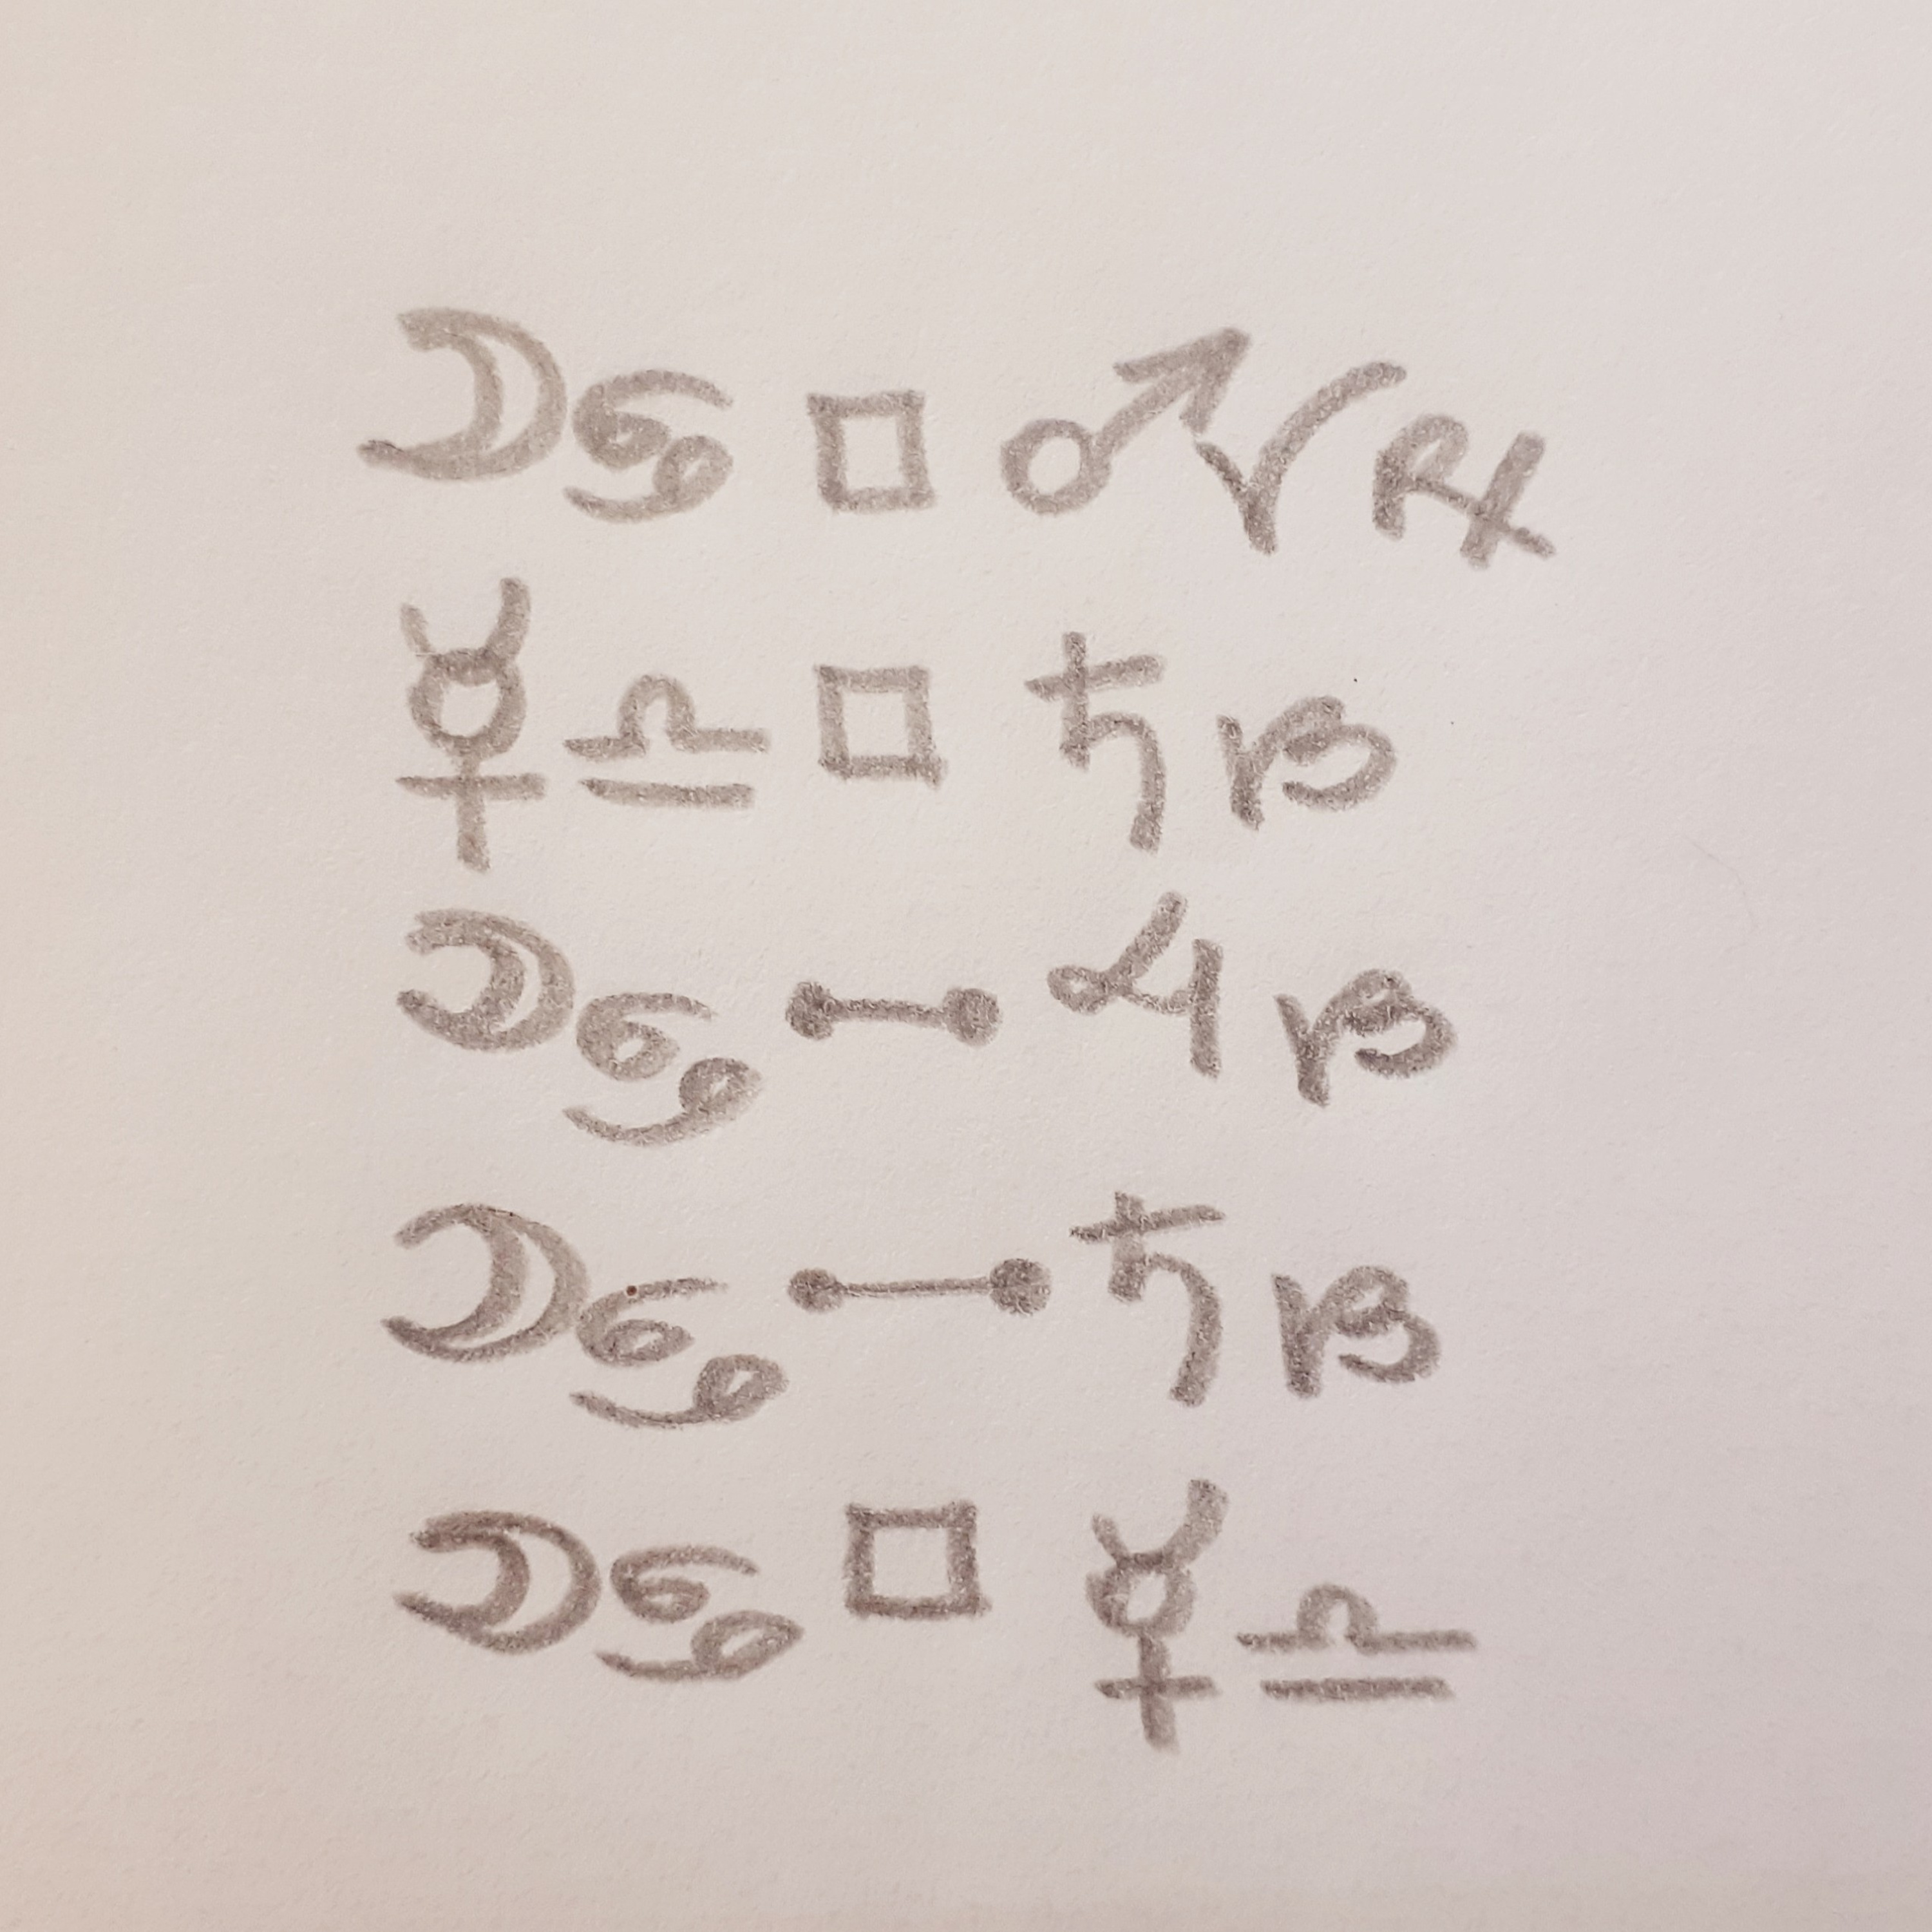 ☽♋□♂♈℞
☿♎□♄♑
☽♋☍♃♑
☽♋☍♄♑
☽♋□☿♎